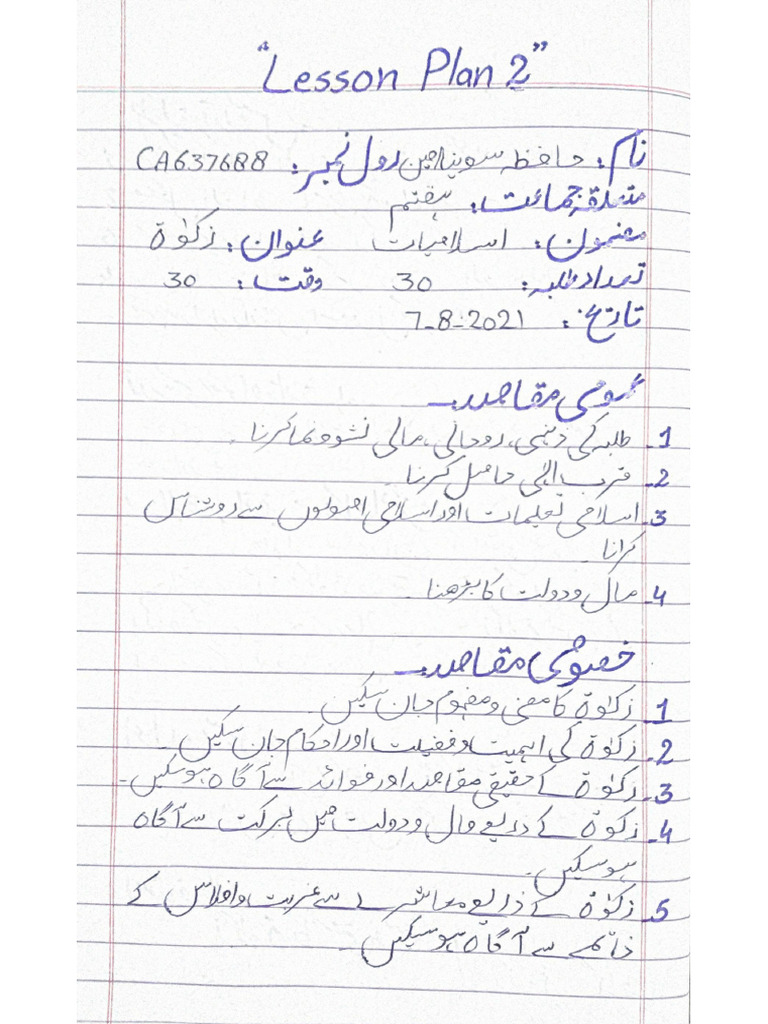 "Lesson Plan 2"
نام: حافظہ سویرا امین رول نمبر: CA637688
متعلقہ جماعت: ہفتم
مضمون: اسلامیات عنوان: زکوٰۃ
تعداد طلبہ: 30 وقت: 30
تاریخ: 7-8-2021
عمومی مقاصد:-
1- طلبہ کی ذہنی، روحانی، مالی نشوونما کرنا۔
2- قرب الٰہی حاصل کرنا۔
3- اسلامی تعلیمات اور اسلامی اصولوں سے روشناس
کرانا۔
4- مال و دولت کا بڑھنا۔
خصوصی مقاصد:-
1- زکوٰۃ کا معنی و مفہوم جان سکیں۔
2- زکوٰۃ کی اہمیت و فضیلت اور احکام جان سکیں۔
3- زکوٰۃ کے حقیقی مقاصد اور فوائد سے آگاہ ہو سکیں۔
4- زکوٰۃ کے ذریعے مال و دولت میں برکت سے آگاہ
ہو سکیں۔
5- زکوٰۃ کے ذریعے معاشرے سے غربت و افلاس کے
خاتمے سے آگاہ ہو سکیں۔